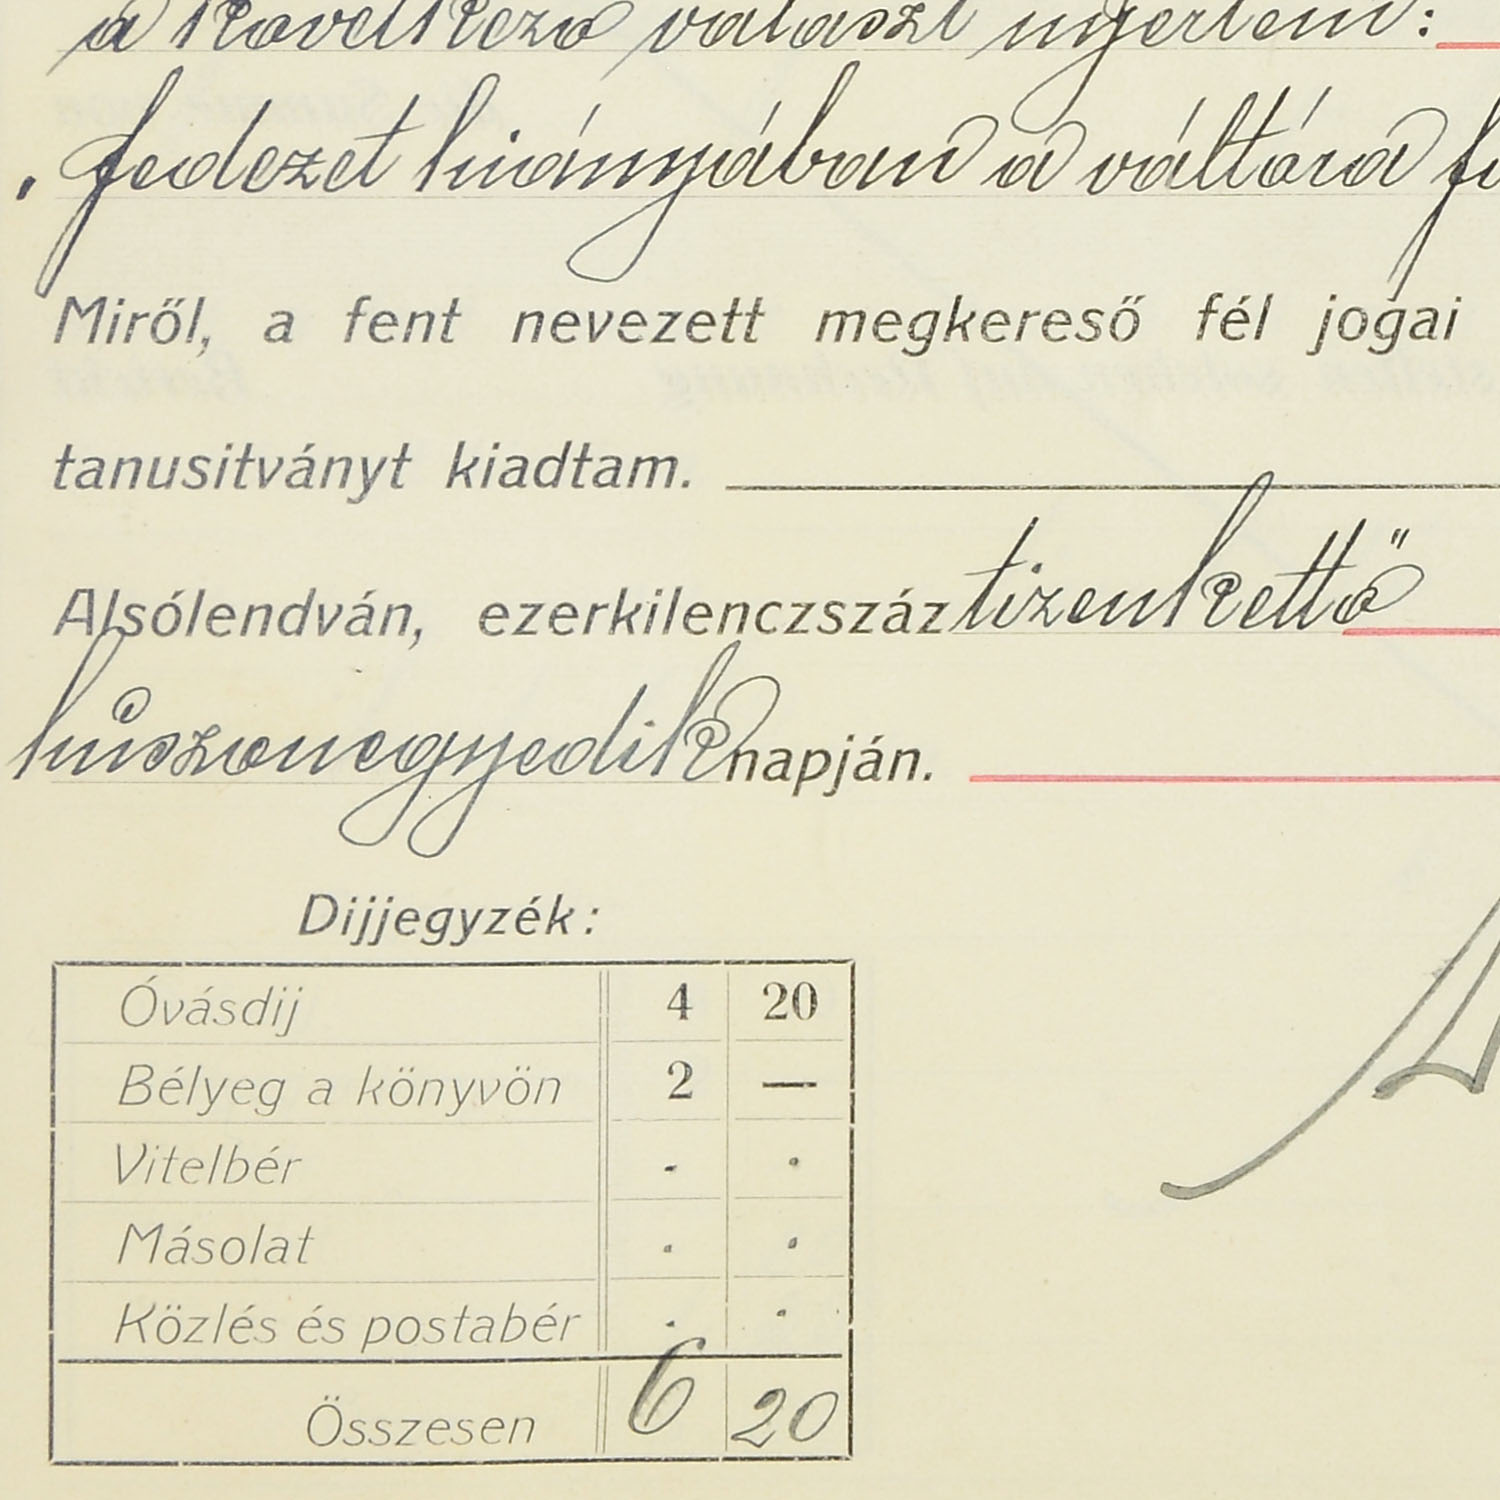 a következő választ nyertem:
„fedezet hiányában a váltóra
Miről, a fent nevezett megkereső fél jogai
tanusitványt kiadtam.
Alsólendván, ezerkilenczszáz tizenkettő
húszonegyedik napján.
Dijjegyzék:
Óvásdij 4 20
Bélyeg a könyvön 2 —
Vitelbér . .
Másolat . .
Közlés és postabér . .
Összesen 6 20